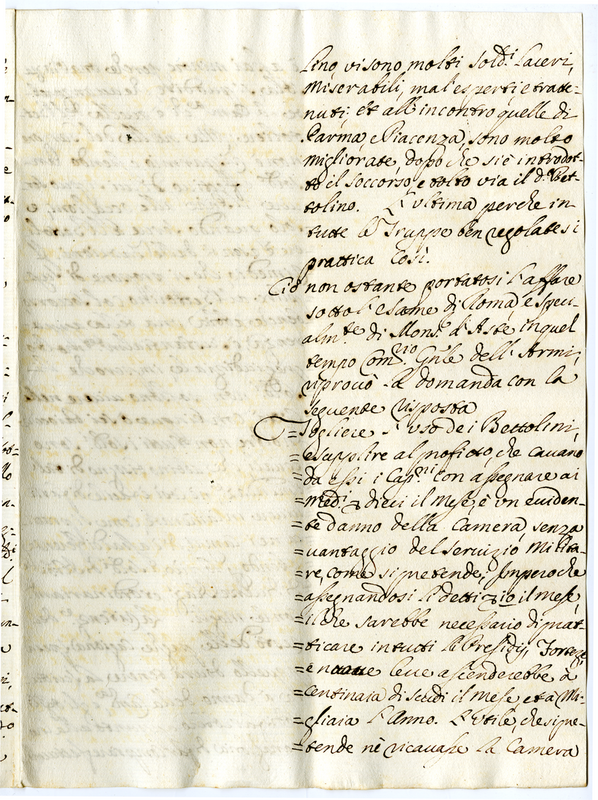 lino vi sono molti Sold.i laceri,
miserabili, mal'esperti, e tratte-
nuti, et all'incontro quelle di
Parma, e Piacenza, sono molto
migliorate, dopo che si è introdot-
to il soccorso, e tolto via il d.o Bet-
tolino. L'ultima perche in
tutte le Truppe ben regolate si
prattica così.
Ciò non ostante portatosi l'affare
sotto l'esame di Roma, e speci-
alm.te di Mons.r d'Aste in quel
tempo Com.rio Gn'le dell'Armi,
riprovò la domanda con la
seguente risposta
= Togliere l'uso dei Bettolini,
= e supplire al profitto, che cavano
= da essi i Cap.ni con assegnare ai
= med.i dieci il mese, è un eviden-
= te danno della Camera, senza
= vantaggio del servizio Milita-
= re, come si pretende; Imperoche
= assegnandosi li detti 10 il mese,
= il che sarebbe necessario di prat-
= ticare in tutti li Presidij, Fortezze
= e nuove leve ascenderebbe à
= Centinaia di scudi il mese, et à Mi-
= gliaia l'Anno. L'Utile, che si pre-
= tende nè ricavasse la Camera